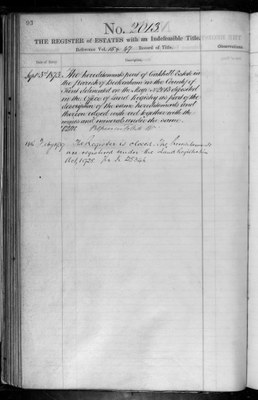 93
No. 2013
THE REGISTER of ESTATES with an Indefeasible Title.
Reference Vol. 67. Record of Title.
Date of Entry.
Description.
Observations.
Sept 3rd 1873. The hereditaments part of Oakhill Estate in
the Parish of Beckenham in the County of
Kent delineated on the Map No 2013 deposited
in the Office of Land Registry as part of the
description of the same hereditaments and
thereon edged with red together with the
mines and minerals under the same
The Register is closed. The hereditaments
are registered under the Land Registration
Act 1925